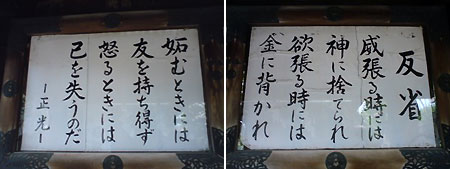 反省
威張る時には
神に捨てられ
欲張る時には
金に背かれ
妬むときには
友を持ち得ず
怒るときには
己を失うのだ
ー正光ー